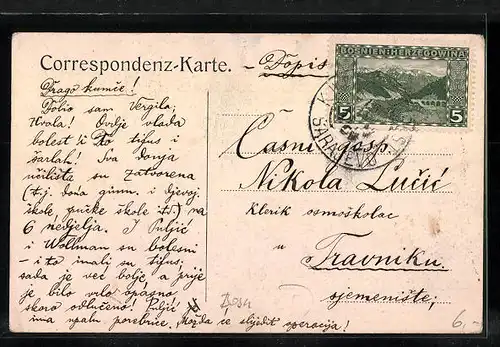 Correspondenz-Karte. – Dopis
BOSNIEN-HERZEGOWINA
5 5
SARAJEVO
Drago kumče!
Dobio sam Vergila,
Hvala! Ovdje vlada
bolest ti To tifus i
šarlah! Sva donja
učilišta su zatvorena
(t.j. dona gimn. i djevoj.
škole, pučke škole itd.) na
6 nedjelja. I Puljić
i Wollman su bolesni
– i to imali su tifus;
sada je već bolje, a prije
je bilo vrlo opasno,
skoro odlučeno! Puljić
ima upalu porebrice, Možda će slijediti operacija!
Časni gosp.
Nikola Lučić
Klerik osmoškolac
u
Travniku.
sjemenište;
Bosn
6,-